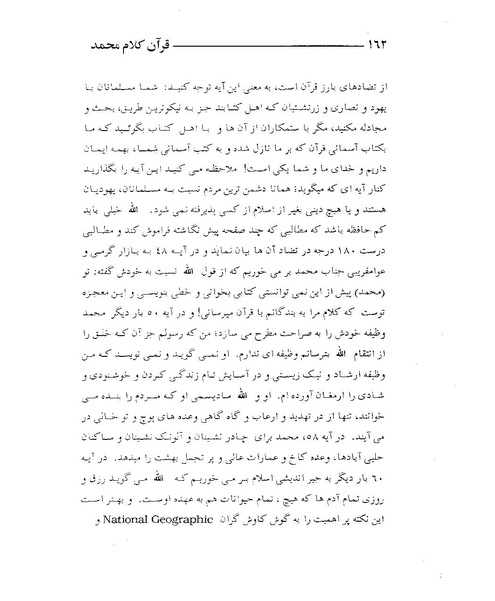 ۱۶۲ ــــــــــــــــــــــــ قرآن کلام محمد
از تضادهای بارز قرآن است، به معنی این آیه توجه کنید: شما مسلمانان با
یهود و نصاری و زرتشتیان که اهل کتابند جز به نیکوترین طریق، بحث و
مجادله مکنید، مگر با ستمکاران از آن ها و با اهل کتاب بگوئید که ما
بکتاب آسمانی قرآن که بر ما نازل شده و به کتب آسمانی شما، بهمه ایمان
داریم و خدای ما و شما یکی است! ملاحظه می کنید این آیه را بگذارید
کنار آیه ای که میگوید: همانا دشمن ترین مردم نسبت به مسلمانان، یهودیان
هستند و یا هیچ دینی بغیر از اسلام از کسی پذیرفته نمی شود. الله خیلی باید
کم حافظه باشد که مطالبی که چند صفحه پیش نگاشته فراموش کند و مطالبی
درست ۱۸۰ درجه در تضاد آن ها بیان نماید و در آیه ۴۸ به بازار گرمی و
عوامفریبی جناب محمد بر می خوریم که از قول الله نسبت به خودش گفته: تو
(محمد) پیش از این نمی توانستی کتابی بخوانی و خطی بنویسی و این معجزه
توست که کلام مرا به بندگانم با قرآن میرسانی! و در آیه ۵۰ بار دیگر محمد
وظیفه خودش را به صراحت مطرح می سازد: من که رسولم جز آن که خلق را
از انتقام الله بترسانم وظیفه ای ندارم. او نمی گوید و نمی نویسد که من
وظیفه ارشاد و نیک زیستی و در آسایش تام زندگی کردن و خوشنودی و
شادی را ارمغان آورده ام. او و الله سادیسمی او که مردم را بنده می
خوانند، تنها از در تهدید و ارعاب و گاه گاهی وعده های پوچ و تو خالی در
می آیند. در آیه ۵۸، محمد برای چادر نشینان و آلونک نشینان و ساکنان
حلبی آبادها، وعده کاخ و عمارات عالی و پر تجمل بهشت را میدهد. در آیه
۶۰ بار دیگر به خیر اندیشی اسلام بر می خوریم که الله می گوید رزق و
روزی تمام آدم ها که هیچ، تمام حیوانات هم به عهده اوست. و بهتر است
این نکته پر اهمیت را به گوش کاوش گران National Geographic و